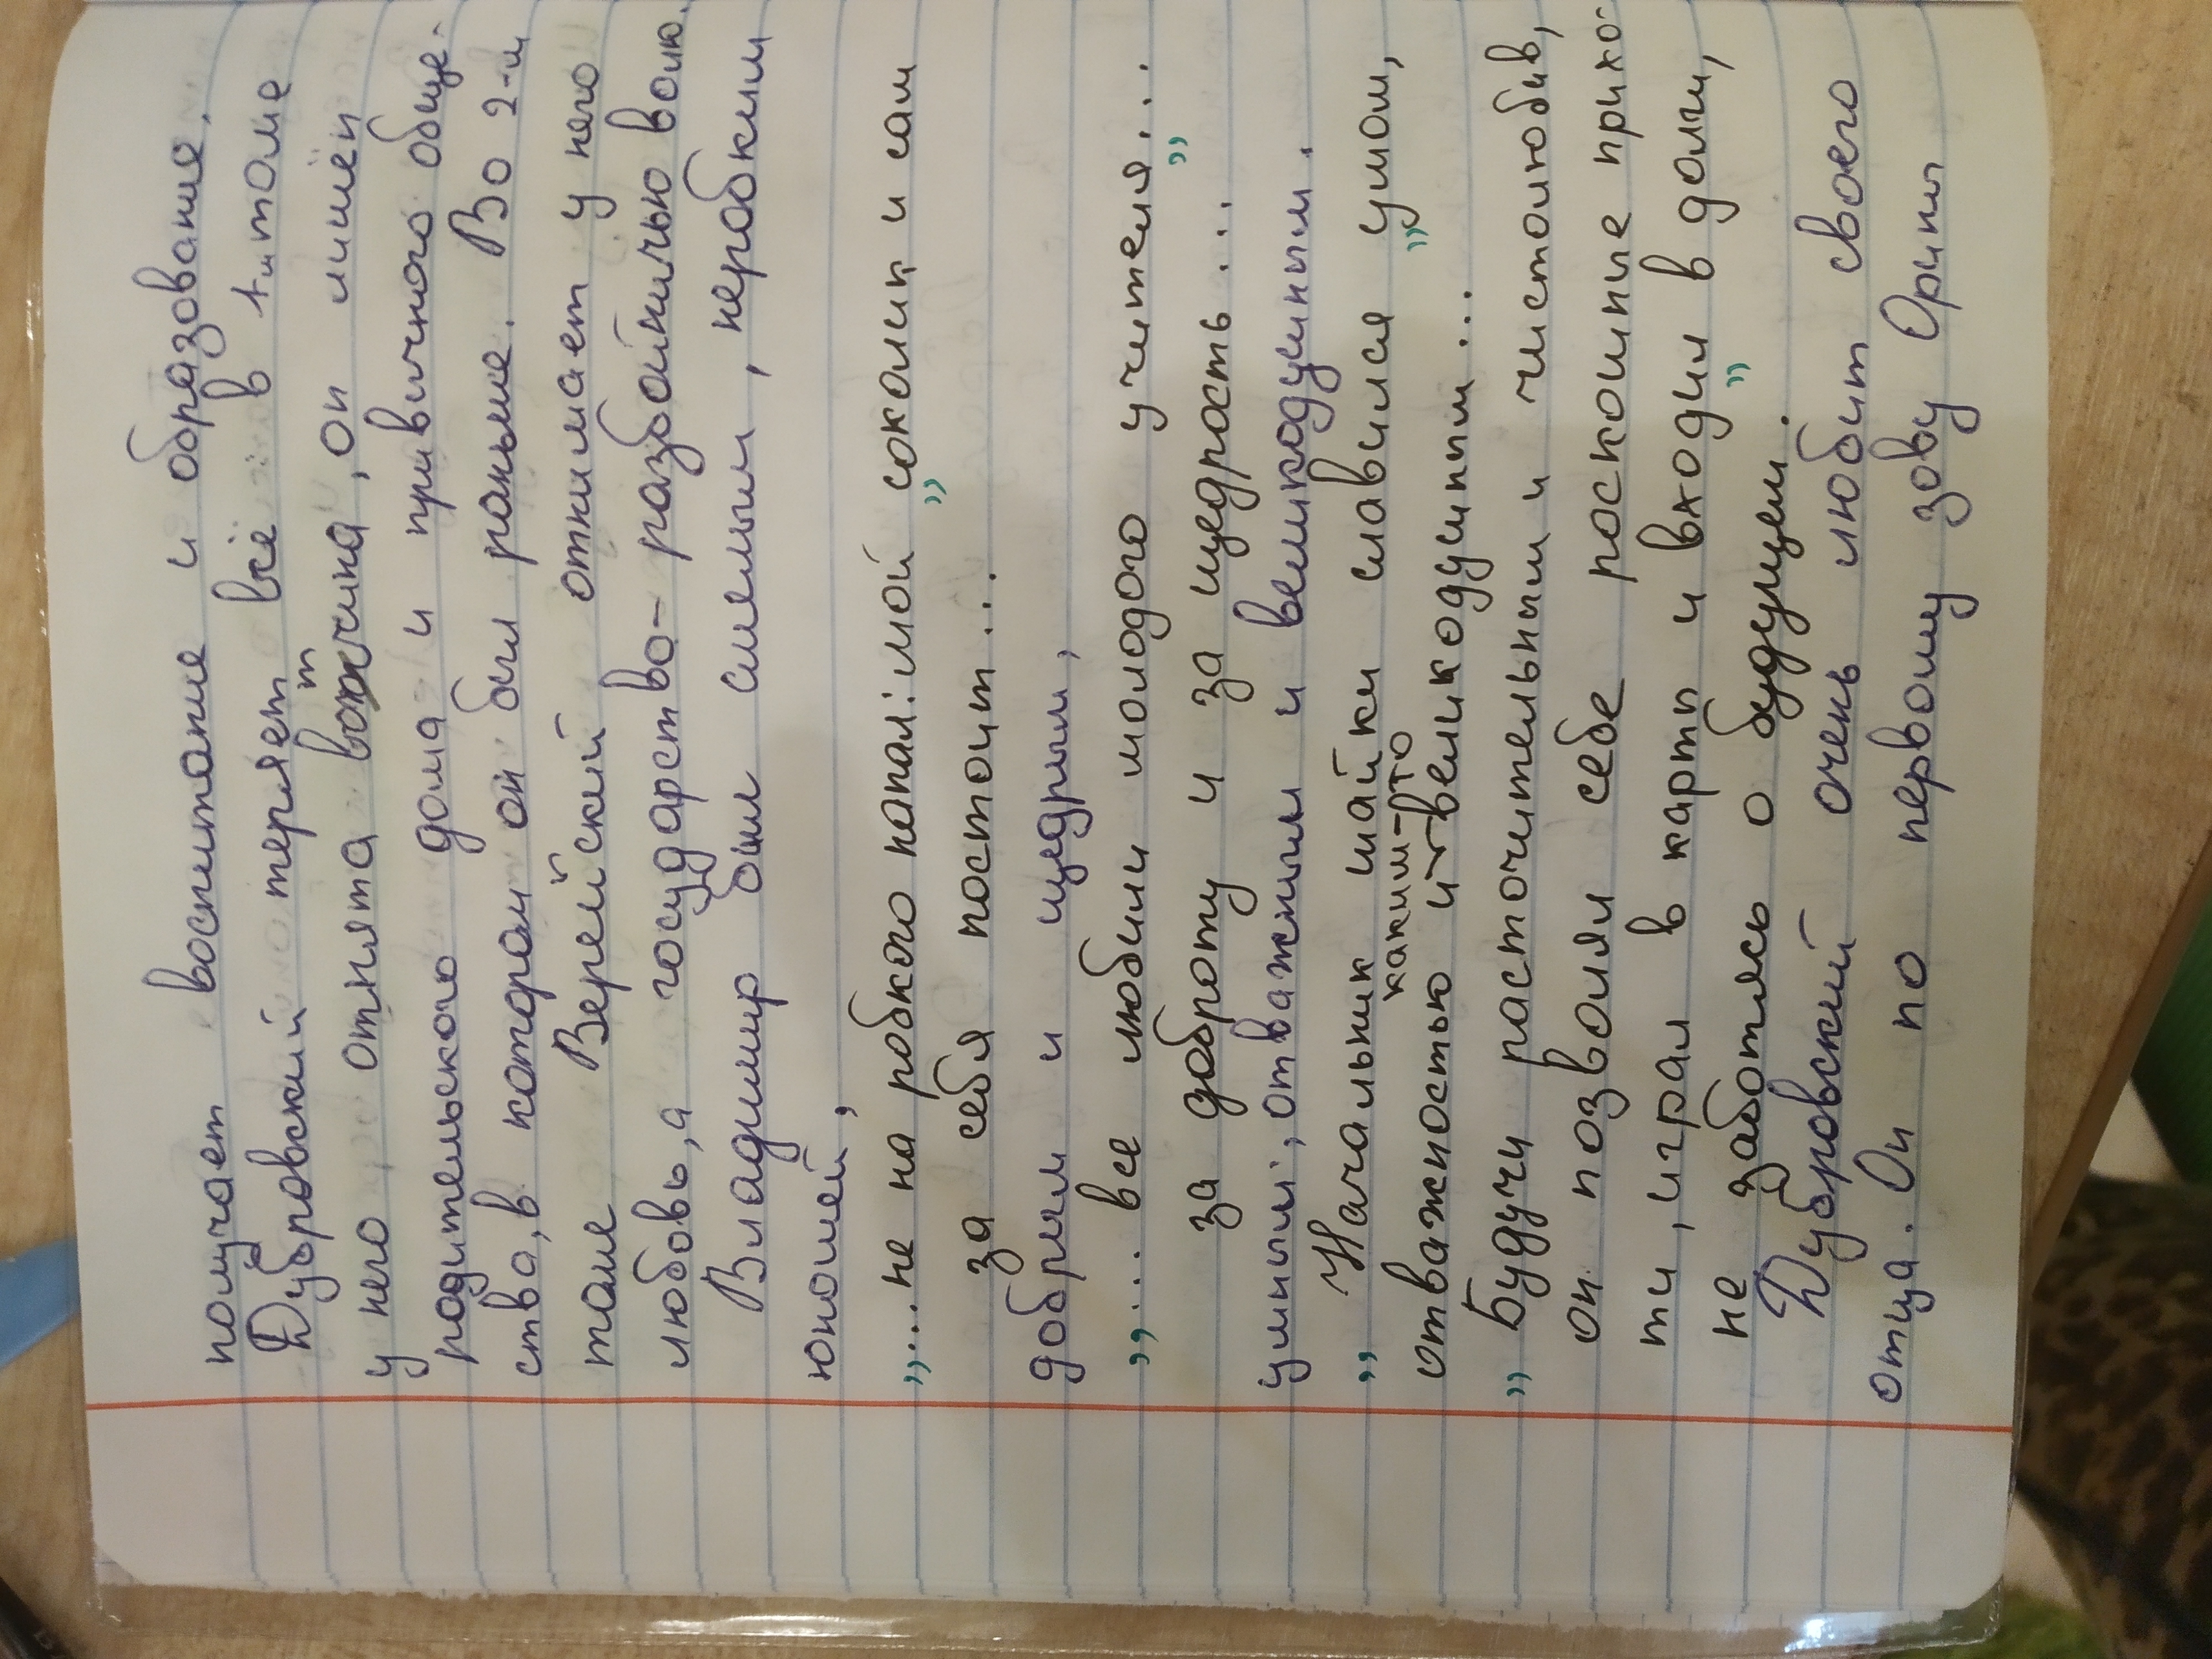 получает воспитание и образование.
Дубровский теряет всё в 1-м томе
у него отнята вотчина, он лишён
родительского дома и привычного обще-
ства, в котором он был раньше. Во 2-м
томе Верейский отнимает у него
любовь, а государство - разбойничью волю.
Владимир был смелым, неробким
юношей,
„... не на робкого напал: мой соколик и сам
за себя постоит..."
добрым и щедрым,
„... все любили молодого учителя...
за доброту и за щедрость..."
умным, отважным и великодушным.
„Начальник шайки славился умом,
отважностью и каким-то великодушным..."
„Будучи расточительным и чистолюбив,
он позволял себе роскошные прихо-
ти, играл в карты и входил в долги,
не заботясь о будущем."
Дубровский очень любит своего
отца. Он по первому зову Орины